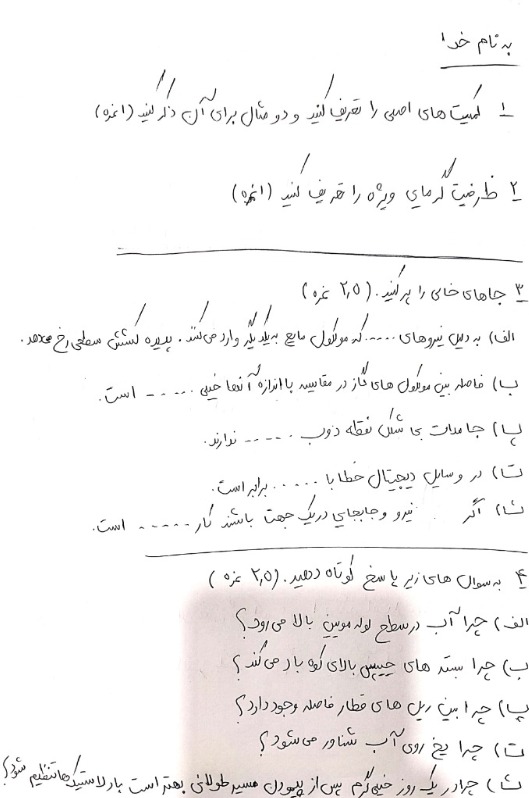 به نام خدا
۱ کمیت های اصلی را تعریف کنید و دو مثال برای آن ذکر کنید (۱نمره)
۲ ظرفیت گرمای ویژه را تعریف کنید (۱نمره)
۳ جاهای خالی را پر کنید. (۲,۵ نمره)
الف) به دلیل نیروهای ..... که مولکول مایع به یکدیگر وارد می کنند. پدیده کشش سطحی رخ میدهد.
ب) فاصله بین مولکول های گاز در مقایسه با اندازه آنها خیلی ..... است.
پ) جامدات بی شکل نقطه ذوب ..... ندارند.
ت) در وسایل دیجیتال خطا با ..... برابر است.
ث) اگر نیرو و جابجایی در یک جهت باشند کار ..... است.
۴ به سوال های زیر پاسخ کوتاه دهید. (۲,۵ نمره)
الف) چرا آب در سطح لوله مویین بالا می رود؟
ب) چرا بسته های چیپس بالای کوه باد می کند؟
پ) چرا بین ریل های قطار فاصله وجود دارد؟
ت) چرا یخ روی آب شناور می شود؟
ث) چرا در یک روز خیلی گرم پس از پیمودن مسیر طولانی بهتر است باد لاستیک ها تنظیم شود؟